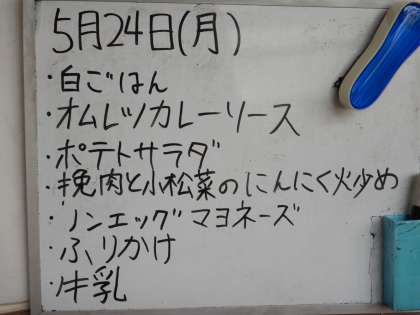 5月24日(月)
・白ごはん
・オムレツカレーソース
・ポテトサラダ
・挽肉と小松菜のにんにく火少め
・ノンエッグマヨネーズ
・ふりかけ
・牛乳